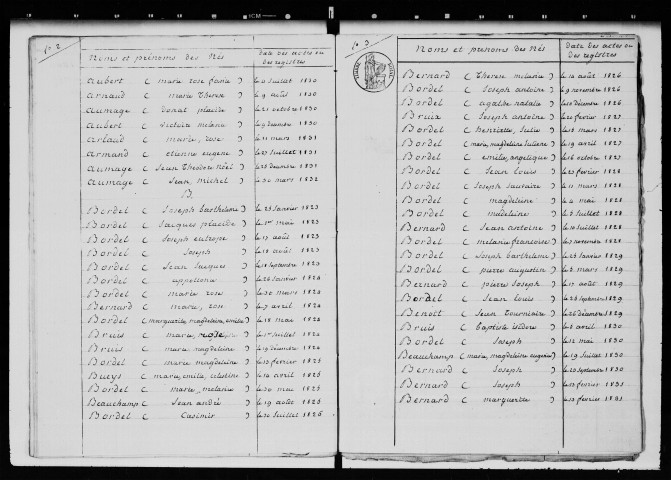 No 2
Noms et prénoms des Nés
Date des actes ou des registres
Aubert ( marie rose
Arnaud ( marie Therese ) le 9 août 1830
Aumage ( Donat placide ) octobre 1830
Aubert ( victoire melanie ) le 9 décembre 1830
Arlaud ( marie, rose ) mars 1831
Armand ( etienne eugene ) le 27 Juillet 1831
Aumage ( Jean Theodore Noël ) décembre 1831
Aumage ( Jean, michel ) le 30 mars 1832
B.
Bordel ( Joseph barthelemi ) Janvier 1823
Bordel ( Jacques placide ) le 1er mai 1823
Bordel ( Joseph eutrope ) août 1823
Bordel ( Joseph ) le 18 août 1823
Bordel ( Jean Jacques ) le 18 septembre 1823
Bordel ( appollonie ) le 26 Janvier 1824
Bordel ( marie rose ) le 30 mars 1824
Bernard ( marie, rose ) le 7 avril 1824
Bordel ( marguerite, magdeleine, emilie ) le 18 mai 1824
Bruis ( marie, ) le 1er Juillet 1824
Bruis ( marie magdeleine ) le 19 décembre 1824
Bordel ( marie magdeleine ) février 1825
Bueys ( marie, emilie, celestine ) avril 1825
Bordel ( marie, melanie ) le 30 mai 1825
Beauchamp ( Jean andré ) le 19 août 1825
Bordel ( Casimir ) Juillet 1826
No 3
Noms et prénoms des Nés
Date des actes ou des registres
Bernard ( Therese melanie ) le 12 août 1826
Bordel ( Joseph antoine ) le 9 novembre 1826
Bordel ( agathe natalie ) décembre 1826
Brux ( Joseph antoine ) février 1827
Bordel ( henriette, Julie ) mars 1827
Bordel ( marie, magdeleine Julienne ) le 19 avril 1827
Bordel ( emilie, angelique ) le 16 octobre 1827
Bordel ( Jean Louis ) février 1828
Bordel ( Joseph ) le 11 mars 1828
Bordel ( magdeleine ) mai 1828
Bordel ( madeleine ) Juillet 1828
Bernard ( Jean antoine ) le 10 Juillet 1828
Bordel ( melanie francoise ) novembre 1828
Bordel ( Joseph barthelemi ) Janvier 1829
Bordel ( pierre augustin ) mars 1829
Bernard ( pierre Joseph ) août 1829
Bordel ( Jean Louis ) septembre 1829
Benoit ( Jean ) décembre 1829
Bruis ( baptiste isidore ) avril 1830
Bordel ( Joseph ) mai 1830
Beauchamp ( marie, magdeleine eugenie ) le 19 Juillet 1830
Bernard ( Joseph ) septembre 1830
Bernard ( Joseph ) février 1831
Bernard ( marguerite ) février 1831